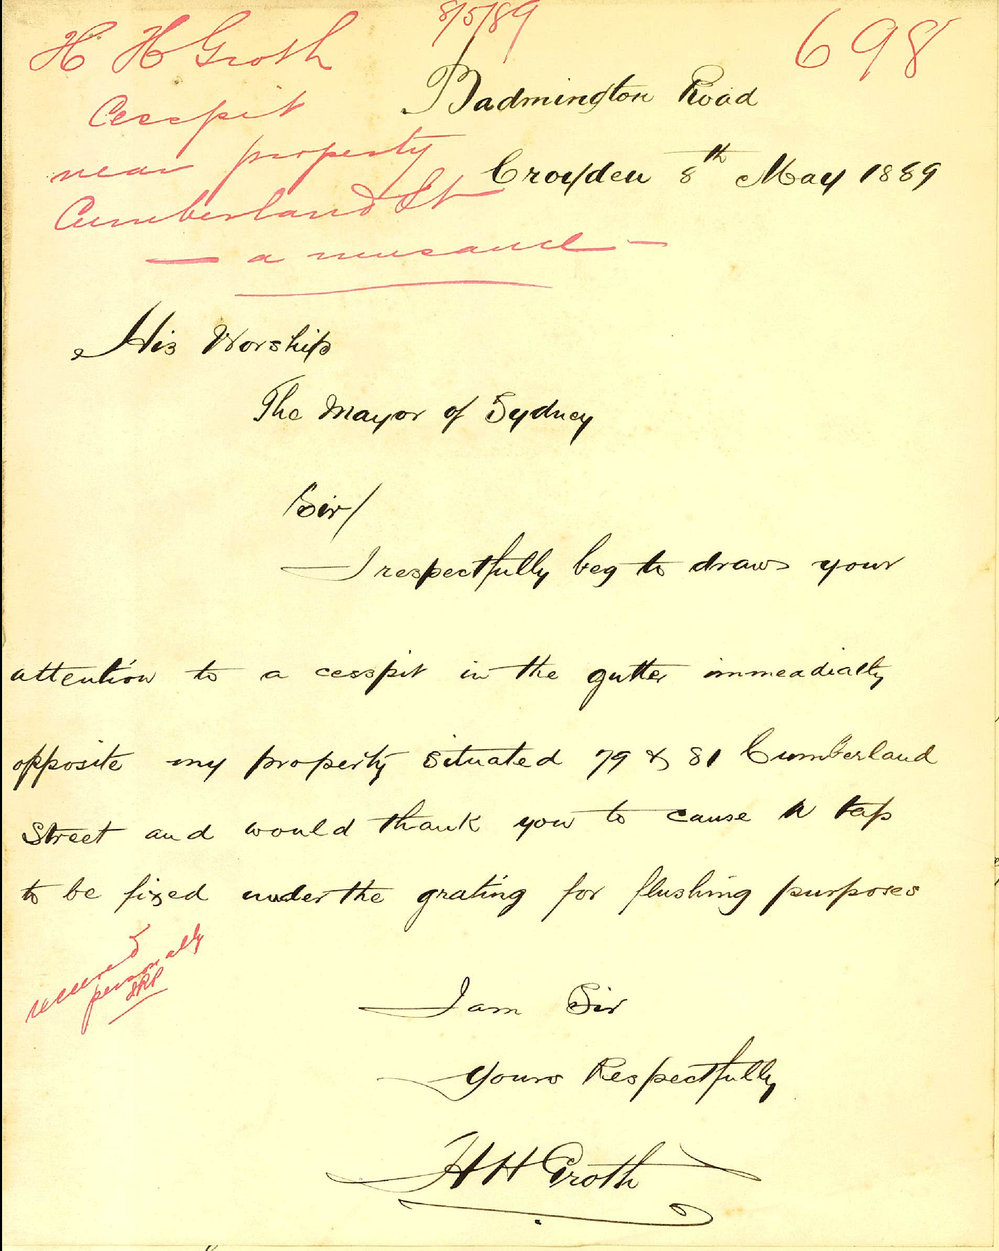 8/5/89
698
H H Groth
Cesspit
near property
Cumberland St
— a nuisance —
Badmington Road
Croyden 8th May 1889
His Worship
The Mayor of Sydney
Sir/
I respectfully beg to draw your
attention to a cesspit in the gutter immeadialty
opposite my property situated 79 & 81 Cumberland
Street and would thank you to cause a tap
to be fixed under the grating for flushing purposes
received
personally
I am Sir
Yours Respectfully
H H Groth